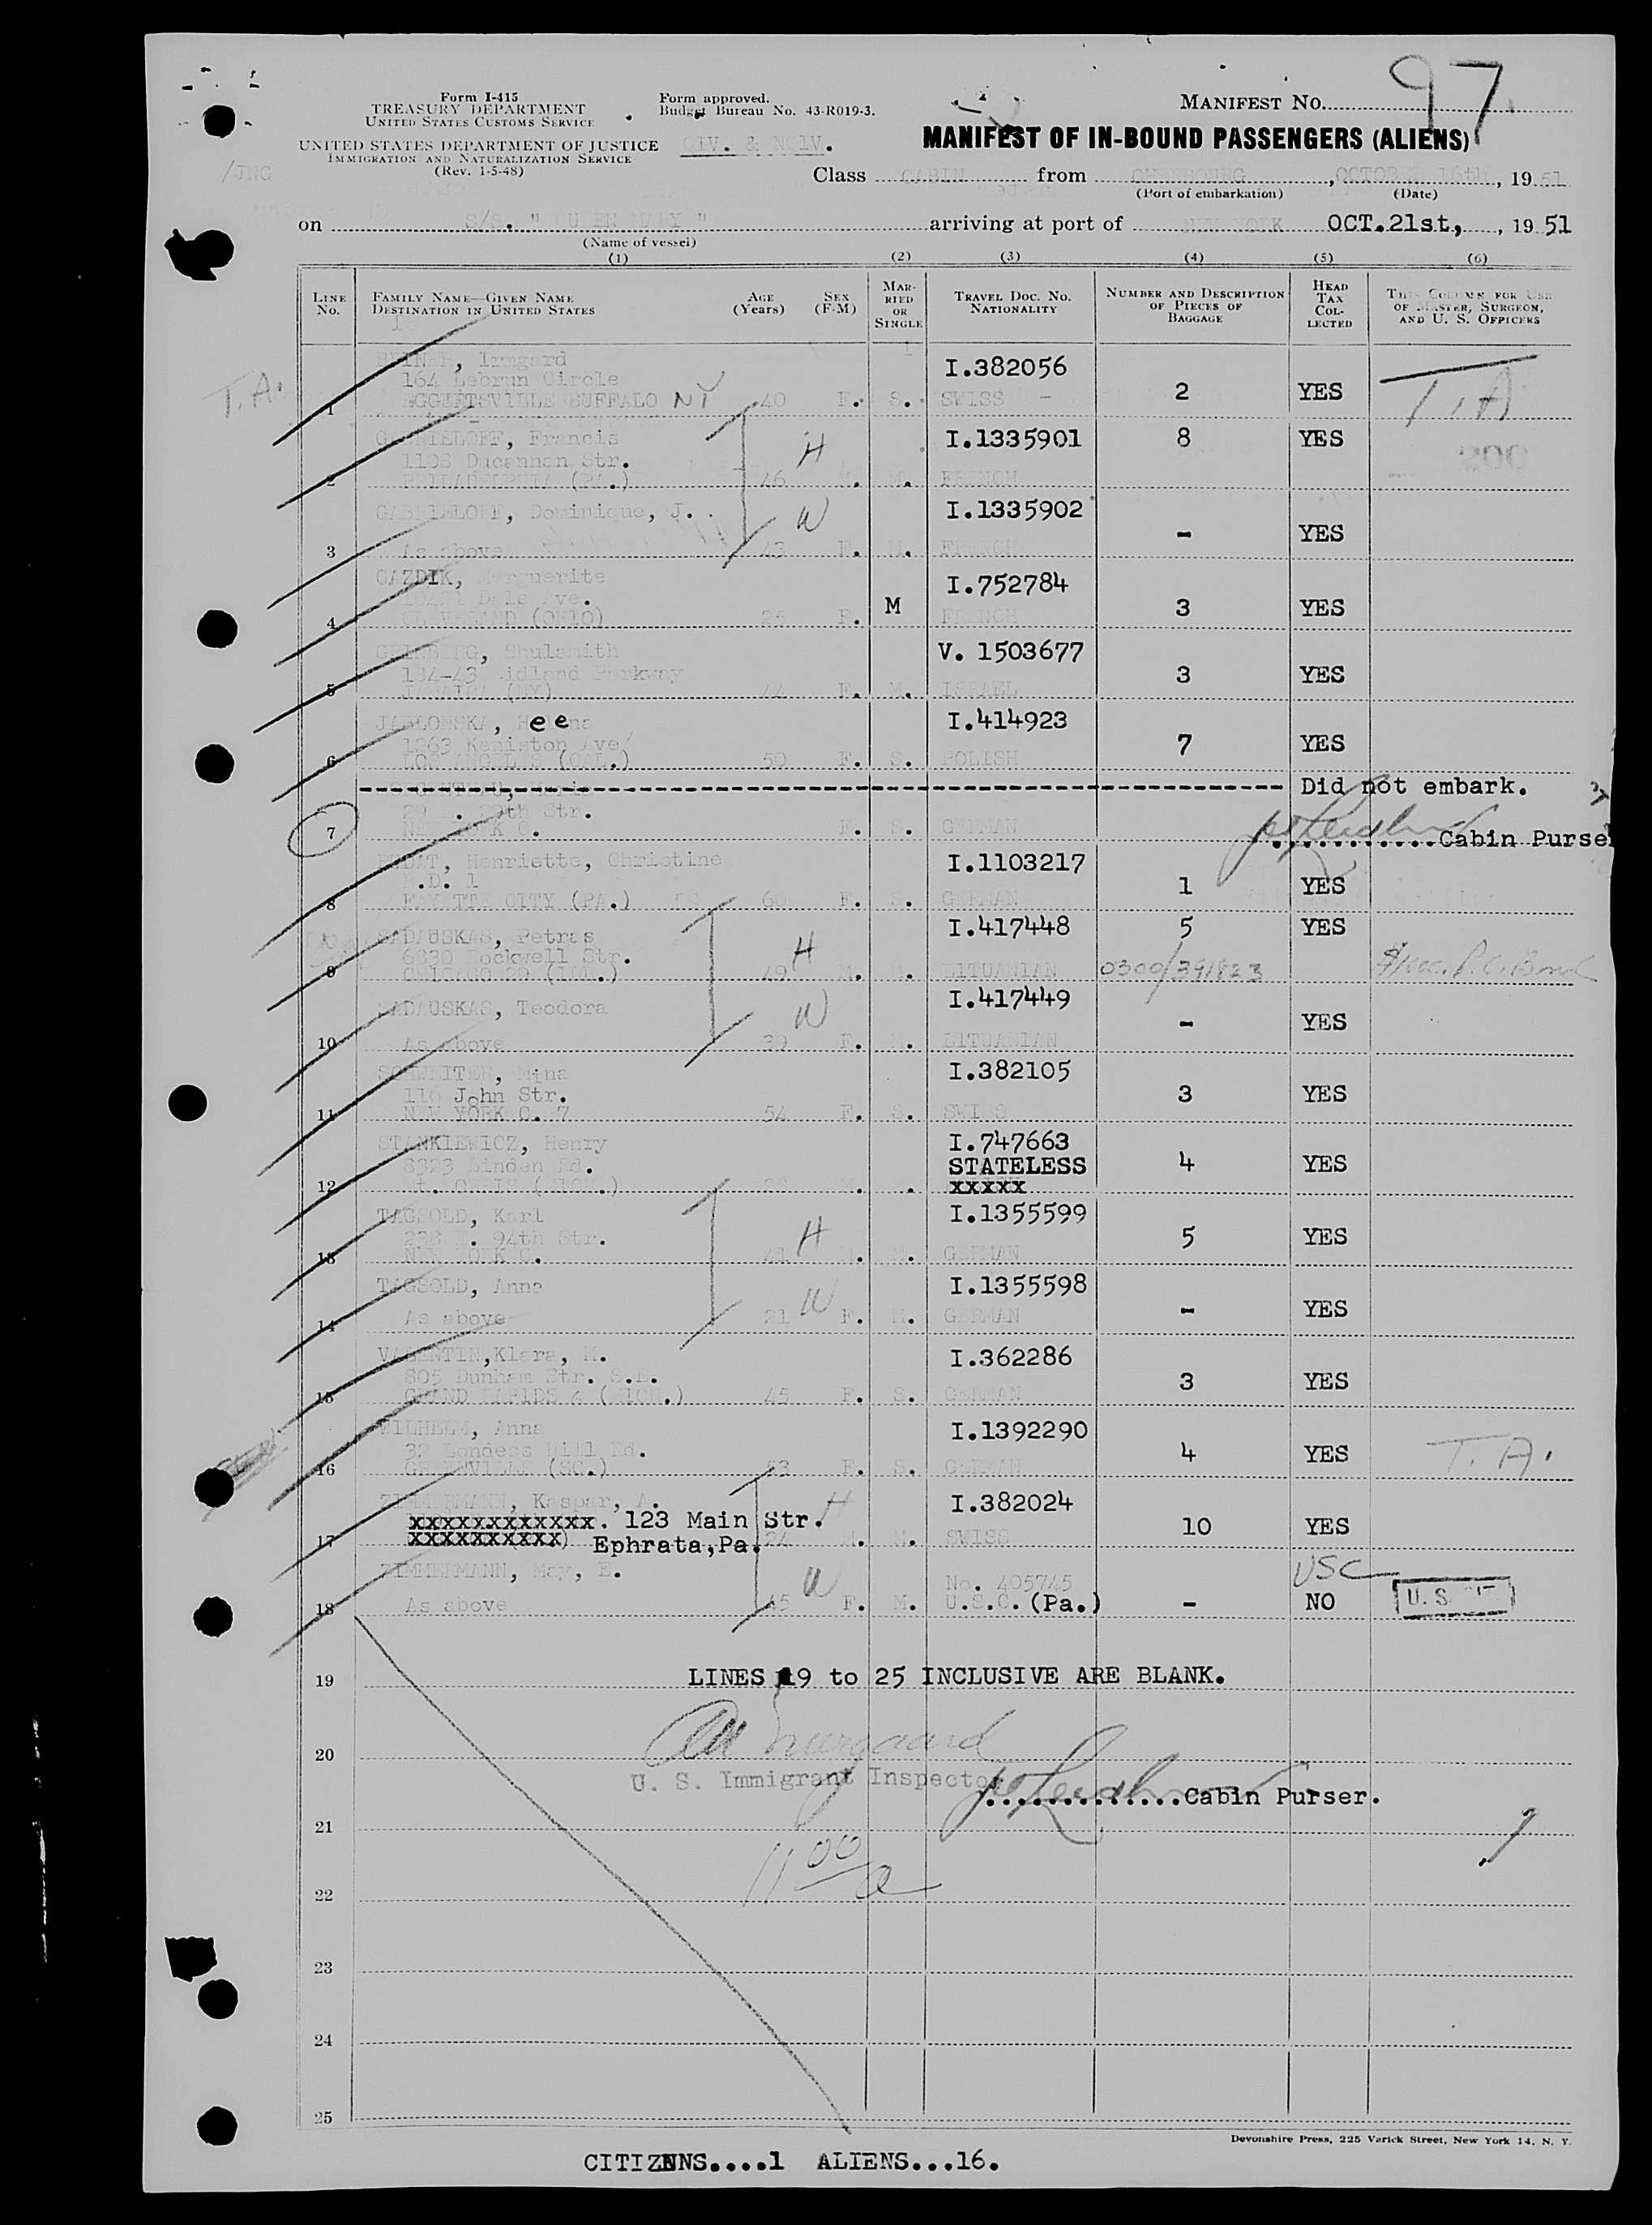 97
Form I-415
TREASURY DEPARTMENT
UNITED STATES CUSTOMS SERVICE
UNITED STATES DEPARTMENT OF JUSTICE
IMMIGRATION AND NATURALIZATION SERVICE
(Rev. 1-5-48)
Form approved.
Budget Bureau No. 43-R019-3.
QIV. & NQIV.
/JNG
MANIFEST NO.
MANIFEST OF IN-BOUND PASSENGERS (ALIENS)
Class CABIN from CHERBOURG, OCTOBER 16th, 1951
(Port of embarkation) (Date)
on S/S. "QUEEN MARY" arriving at port of NEW YORK OCT.21st, , 19 51
(Name of vessel)
(1) (2) (3) (4) (5) (6)
LINE NO.
FAMILY NAME—GIVEN NAME
DESTINATION IN UNITED STATES
AGE (Years)
SEX (F-M)
MARRIED OR SINGLE
TRAVEL DOC. NO. NATIONALITY
NUMBER AND DESCRIPTION OF PIECES OF BAGGAGE
HEAD TAX COLLECTED
THIS COLUMN FOR USE OF MASTER, SURGEON, AND U. S. OFFICERS
T.A. 1 Irmgard I.382056
164 Lebrun Circle
EGGERTSVILLE BUFFALO NY 40 F. S. SWISS - 2 YES T.A
2 GABRIELOFF, Francis H I.1335901 8 YES
Str.
PHILADELPHIA (PA.) 46 M. M. FRENCH
3 GABRIELOFF, Dominique, J. W I.1335902
As above 43 F. M. FRENCH - YES
4 GAZDIK, Marguerite I.752784
Dale Ave.
CLEVELAND (OHIO) 25 F. M FRENCH 3 YES
5 Shulamith V. 1503677
184-43 Midland Parkway
JAMAICA (NY) 44 F. M. ISRAEL 3 YES
6 JABLONSKA, Helena ee I.414923
1263 Keniston Ave/
LOS ANGELES (CAL.) 50 F. S. POLISH 7 YES
Maria Did not embark.
7 Str.
NEW YORK C. F. S. GERMAN Cabin Purser
8 Henriette, Christine I.1103217
R.D. 1
FAYETTE CITY (PA.) 60 F. S. GERMAN 1 YES
9 SADAUSKAS, Petras H I.417448 5 YES
6830 Rockwell Str.
CHICAGO 29 (ILL.) 49 M. M. LITUANIAN 0300/391823 P.C. Bond
10 SADAUSKAS, Teodora W I.417449
As above 39 F. M. LITUANIAN - YES
11 SCHWEITER, Mina I.382105
116 John Str.
NEW YORK C. 7 54 F. S. SWISS 3 YES
12 STANKIEWICZ, Henry I.747663
8323 Linden Rd. STATELESS 4 YES
xxxxx
13 TAGSOLD, Karl I.1355599
238 E. 94th Str. H
NEW YORK C. 41 M. M. GERMAN 5 YES
14 TAGSOLD, Anna I.1355598
As above 21 W F. M. GERMAN - YES
15 VALENTIN,Klara, M. I.362286
805 Dunham Str. S.E.
GRAND RAPIDS 6 (MICH.) 45 F. S. GERMAN 3 YES
16 WILHELM, Anna I.1392290
32 Hill Rd.
GREENVILLE (SC.) 53 F. S. GERMAN 4 YES T.A.
17 ZIMMERMANN, Kaspar, A. H I.382024
xxxxxxxxxxxx. 123 Main Str.
xxxxxxxxxx) Ephrata,Pa. 24 M. M. SWISS 10 YES
18 ZIMMERMANN, May, E. W No. 405745 USC
As above 45 F. M. U.S.C. (Pa.) - NO U.S.
19 LINES 19 to 25 INCLUSIVE ARE BLANK.
20
U. S. Immigrant Inspector
Cabin Purser.
21
11 00 a
22
23
24
25
Devonshire Press, 225 Varick Street, New York 14, N. Y.
CITIZENS....1 ALIENS...16.